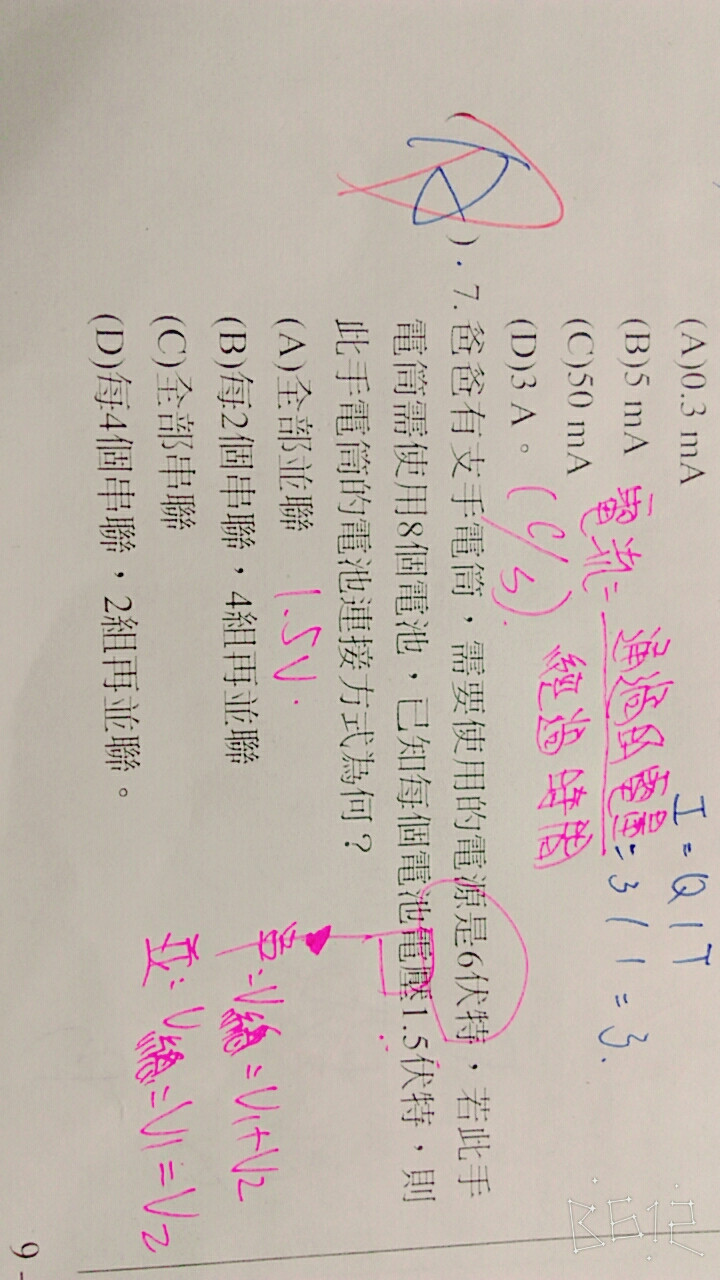 (A)0.3 mA
(B)5 mA
(C)50 mA
(D)3 A。
(C/S).
電流=
通過的電量
經過時間
= 3/1 = 3.
I = Q/T
)
7. 爸爸有支手電筒，需要使用的電源是6伏特，若此手
電筒需使用8個電池，已知每個電池電壓1.5伏特，則
此手電筒的電池連接方式為何？
(A)全部並聯
1.5V.
(B)每2個串聯，4組再並聯
(C)全部串聯
(D)每4個串聯，2組再並聯。
串:V總=V1+V2
並:V總=V1=V2
9
B612